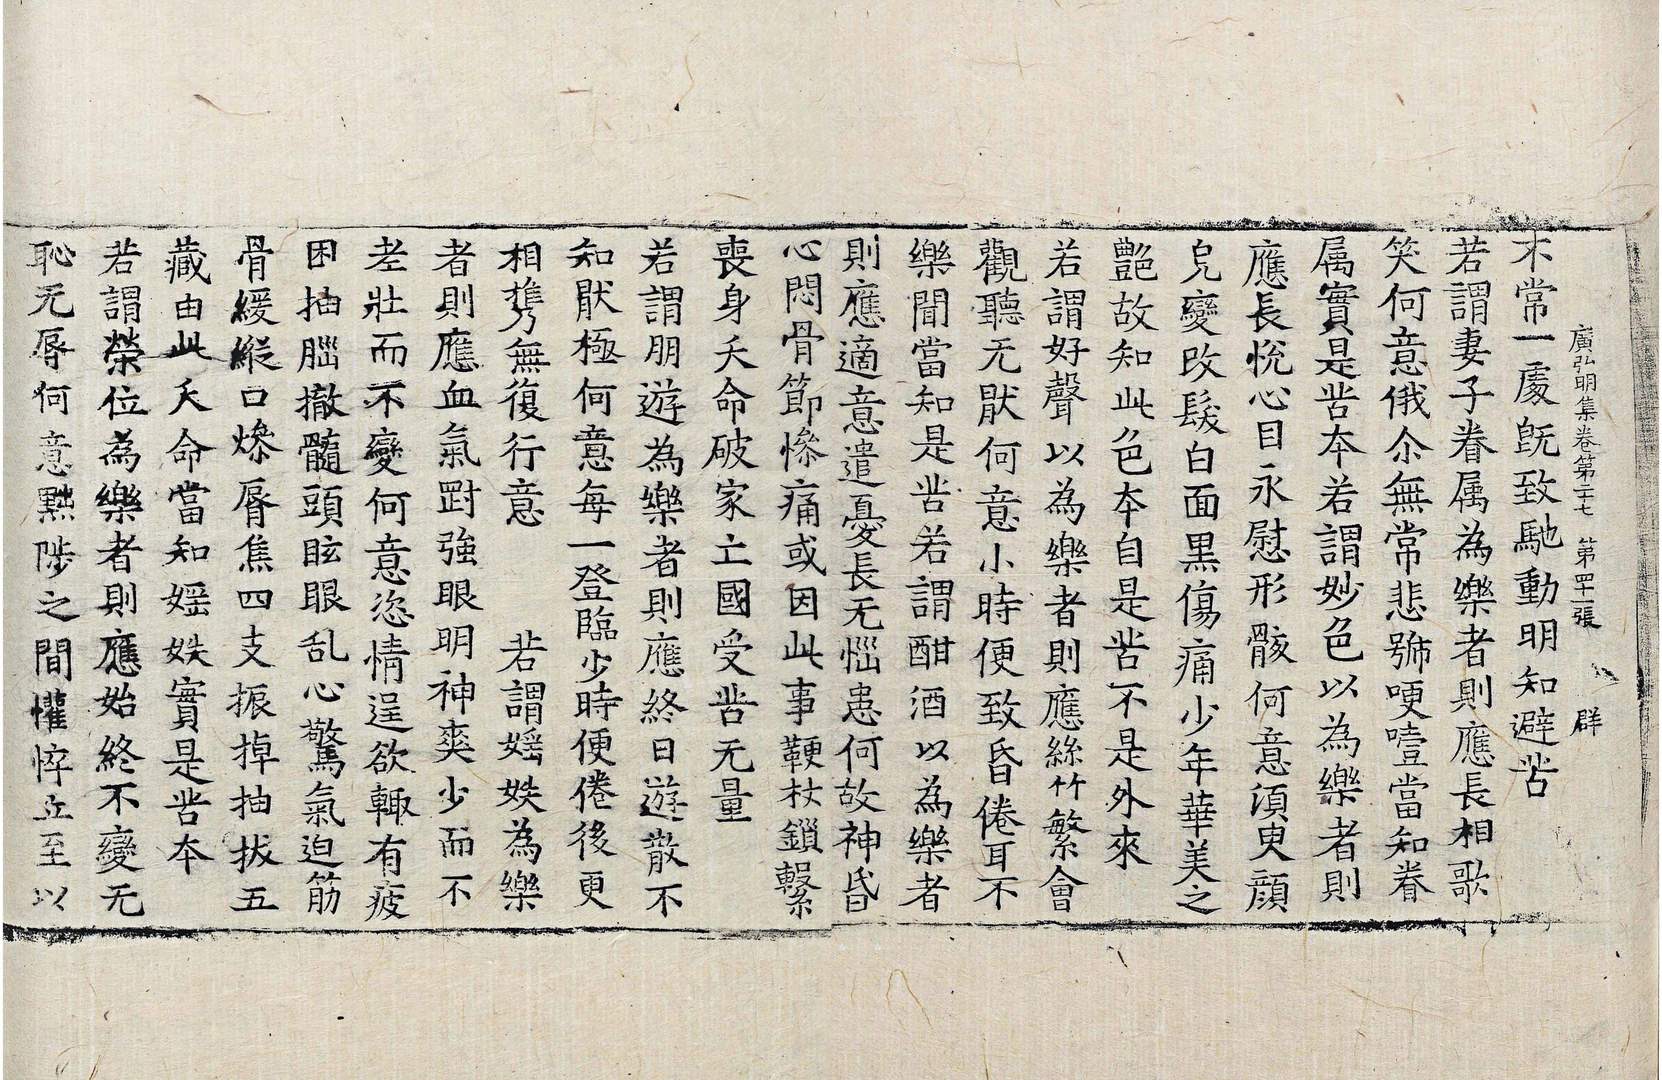 廣弘明集卷第二十七　第四十一張　群
不常一處旣致馳動明知避苦
若謂妻子眷属為樂者則應長相歌
笑何意俄尒無常悲號哽噎當知眷
属實是苦本若謂妙色以為樂者則
應長悅心目永慰形骸何意湏臾顔
皃變改髮白面黒傷痛少年華美之
艷故知此色本自是苦不是外來
若謂好聲以為樂者則應絲竹繁會
觀聽无猒何意小時便致昏倦耳不
樂聞當知是苦若謂酣酒以為樂者
則應適意遣憂長无惱患何故神昏
心悶骨節慘痛或因此事鞕杖鎖繫
喪身夭命破家亡國受苦无量
若謂朋遊為樂者則應終日遊散不
知猒極何意每一登臨少時便倦後更
相攜無復行意　若謂婬妷為樂
者則應血氣剛強眼明神爽少而不
老壯而不變何意恣情逞欲輙有疲
困抽腦撤髓頭眩眼乱心驚氣迫筋
骨緩縱口燥脣焦四支振掉抽拔五
藏由此夭命當知婬妷實是苦本
若謂榮位為樂者則應始終不變无
恥无辱何意黜陟之間懽悴立至以